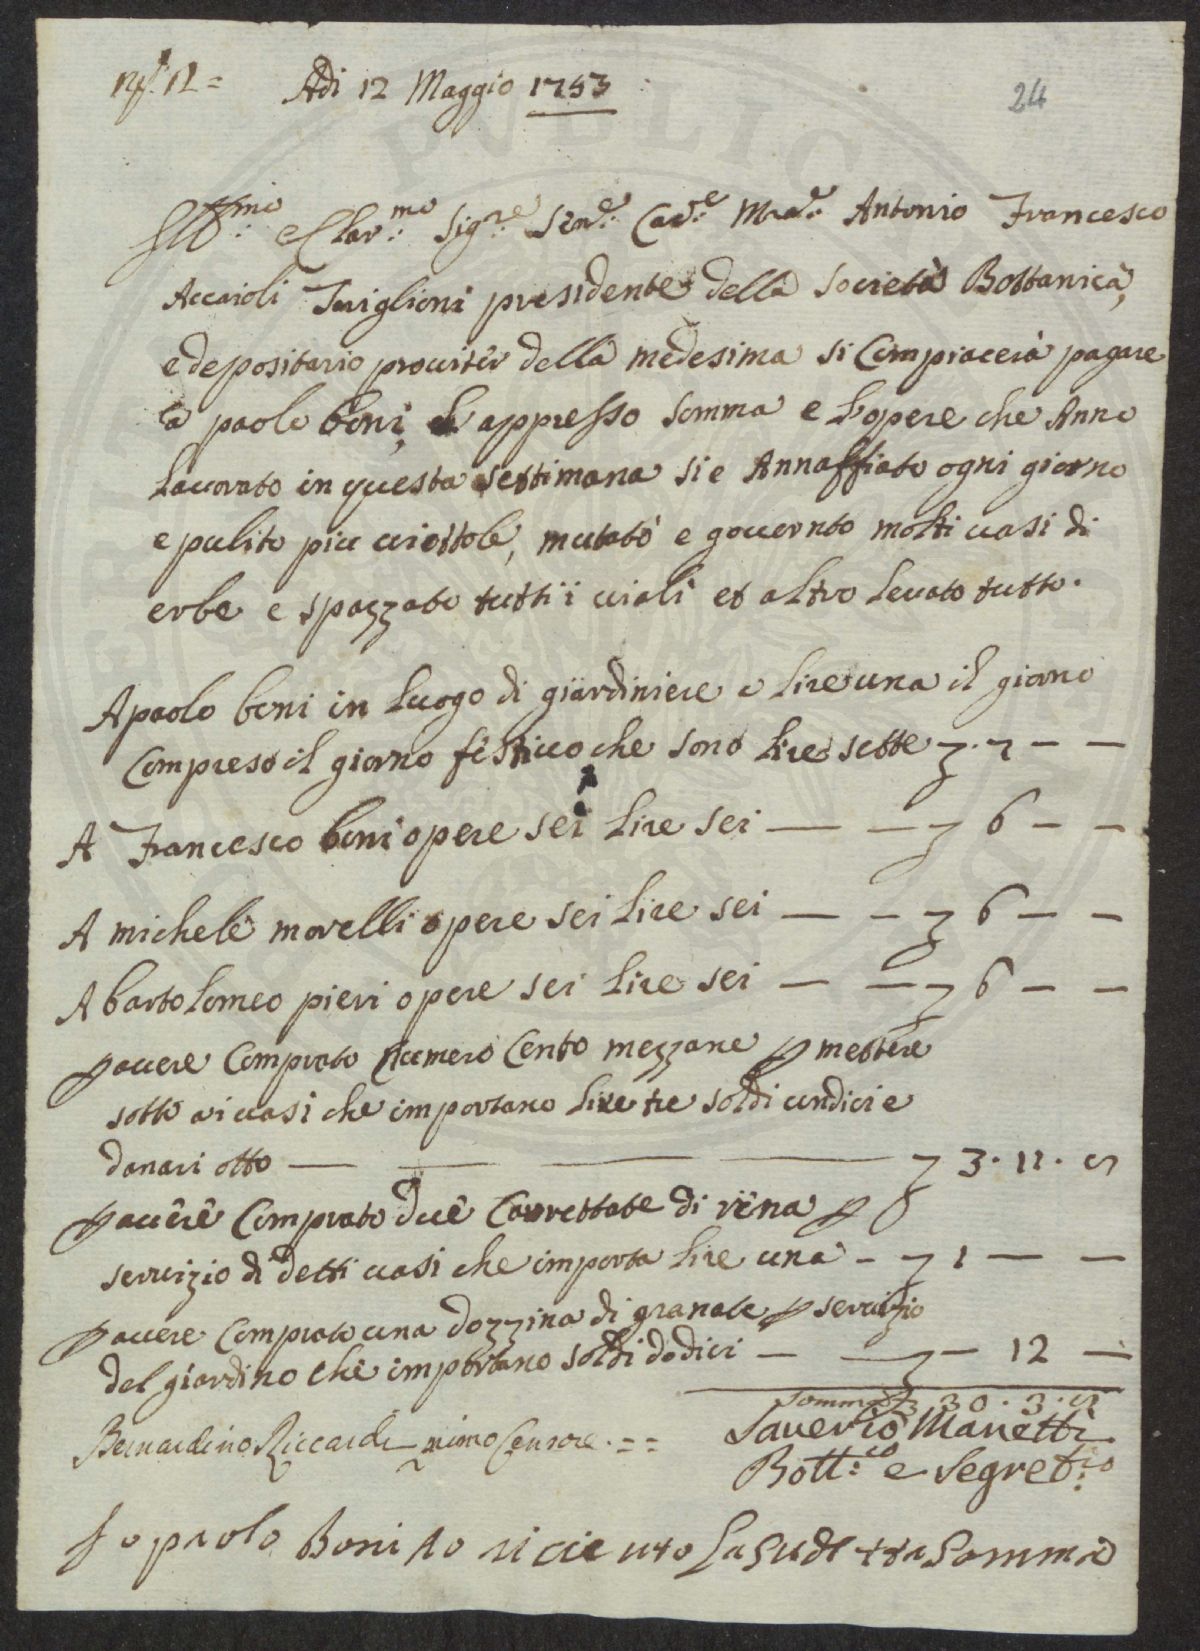 N.º 12 = Adi 12 Maggio 1753
24
Ill.mo e Clar.mo Sig.re Sen.e Cav.e March.e Antonio Francesco
Accaioli Toriglioni presidente della Società Bottanica,
e depositario proviter della medesima si Compiacerà pagare
a paolo boni, d appresso somma e l'opere che Anno
Lavorato in questa settimana si e Annaffiato ogni giorno
e pulito piu viottole, mutato e governto molti vasi di
erbe e spazzato tutti i viali et altro levato tutto.
A paolo boni in luogo di giardiniere a lire una il giorno
Compreso il giorno festivo che sono lire sette — 7 — —
A Francesco boni opere sei lire sei — — 6 — —
A michele morelli opere sei lire sei — — 6 — —
A bartolomeo pieri opere sei lire sei — — 6 — —
p avere Comprato numero Cento mezzane p mettere
sotto ai vasi che importano lire tre soldi undici e
danari otto — — — — 3. 11. 8
p avere Comprato due Carrettate di rena p
servizio di detti vasi che importa lire una — 1 — —
p avere Comprato una dozzina di granate p servizio
del giardino che importano soldi dodici — — — 12 —
Somma 30. 3. 8
Bernardino Riccardi primo Censore. = =
Saverio Manetti
Bott.co e Segret.rio
Io paolo Boni ho ricieuto La sudetta Somma